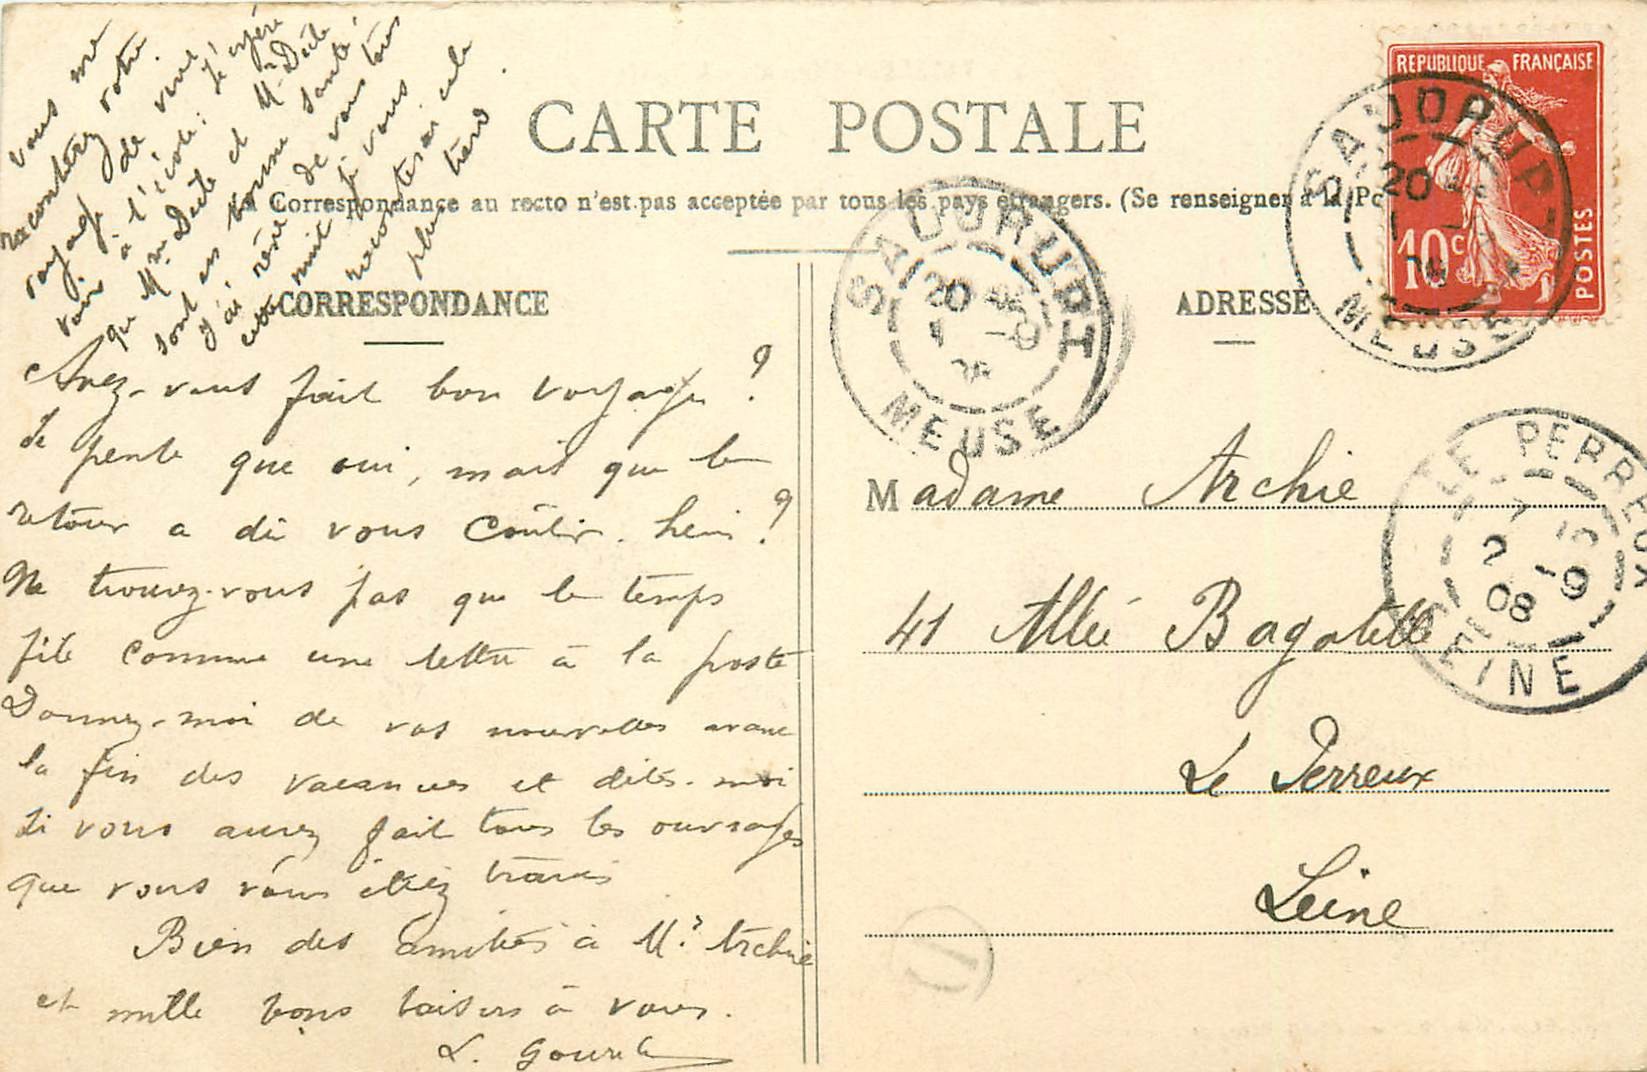 CARTE POSTALE
Correspondance au recto n'est pas acceptée par tous les pays étrangers. (Se renseigner à la Po
CORRESPONDANCE
ADRESSE
REPUBLIQUE FRANÇAISE
10c
POSTES
SAUDRUPT
20
MEUSE
SAUDRUPT
20
MEUSE
LE PERREUX
7
2 -9
08
SEINE
Avez-vous fait bon voyage ?
Je pense que oui, mais que le
retour a dû vous coûter. hein ?
Ne trouvez-vous pas que le temps
file comme une lettre à la poste
Donnez-moi de vos nouvelles avant
la fin des vacances et dites-moi
si vous avez fait tous les ouvrages
que vous vous étiez
Bien des amitiés à Mr Archie
et mille bons baisers à vous.
L.
vous me
raconterez votre
voyage de vive
voix à l'école: J'espère
que Mme et Mr
sont en bonne santé
j'ai rêvé de vous tous
cette nuit je vous
raconterai cela
plus tard.
Madame Archie
41 Allée Bagatelle
Le Perreux
Seine